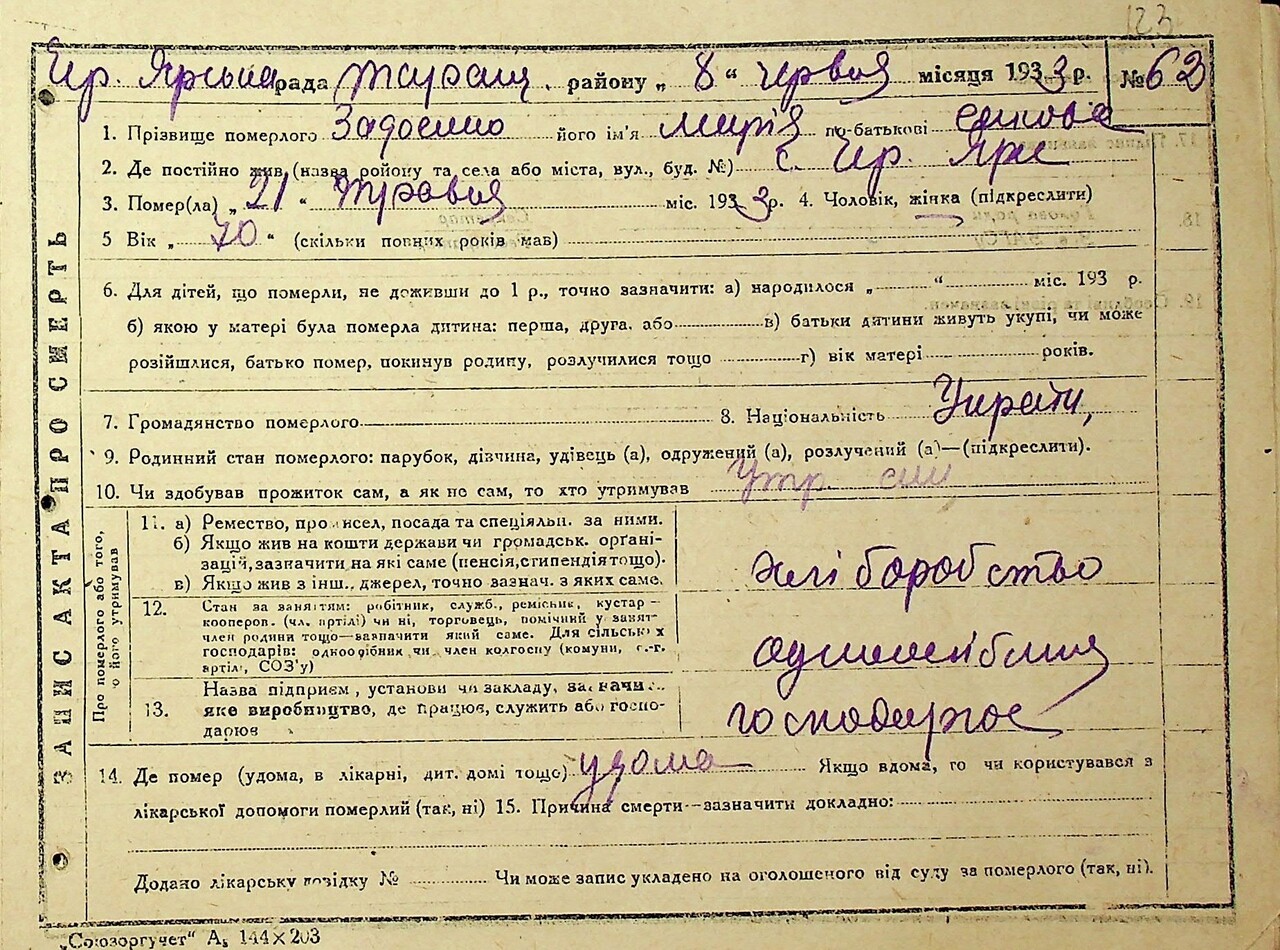 123
Чер. Ярська рада Таращ. району „ 8 “ червня місяця 1933 р. № 62
1. Прізвище померлого Задоєнко його ім'я Марія по-батькові
2. Де постійно жив (назва району та села або міста, вул., буд. №) с. Чер. Яри
3. Помер(ла) „ 21 “ травня міс. 1933 р. 4. Чоловік, жінка (підкреслити)
5 Вік „ 70 “ (скільки повних років мав)
6. Для дітей, що померли, не доживши до 1 р., точно зазначити: а) народилося „ “ міс. 193 р.
б) якою у матері була померла дитина: перша, друга, або в) батьки дитини живуть укупі, чи може
розійшлися, батько помер, покинув родину, розлучилися тощо г) вік матері років.
7. Громадянство померлого 8. Національність Украін,
9. Родинний стан померлого: парубок, дівчина, удівець (а), одружений (а), розлучений (а)—(підкреслити).
10. Чи здобував прожиток сам, а як не сам, то хто утримував Утр. син
ЗАПИС АКТА ПРО СМЕРТЬ
Про померлого або того, хто його утримував
11. а) Ремество, промисел, посада та спеціяльн. за ними.
б) Якщо жив на кошти держави чи громадськ. орґані-
зацій, зазначити на які саме (пенсія, стипендія тощо).
в) Якщо жив з інш. джерел, точно зазнач. з яких саме.
хліборобство
12. Стан за заняттям: робітник, служб., ремісник, кустар—
кооперов. (чл. артілі) чи ні, торговець, помічний у занят.
член родини тощо—зазначити який саме. Для сільських
господарів: одноосібник чи член колгоспу (комуни, с.-г.
артілі, СОЗ'у)
13. Назва підприєм., установи чи закладу, зазначи..
яке виробництво, де працює, служить або госпо-
дарює
господарює
14. Де помер (удома, в лікарні, дит. домі тощо) удома Якщо вдома, то чи користувався з
лікарської допомоги померлий (так, ні) 15. Причина смерти—зазначити докладно:
Додано лікарську довідку № Чи може запис укладено на оголошеного від суду за померлого (так, ні).
„Союзоргучет“ А₅ 144×203